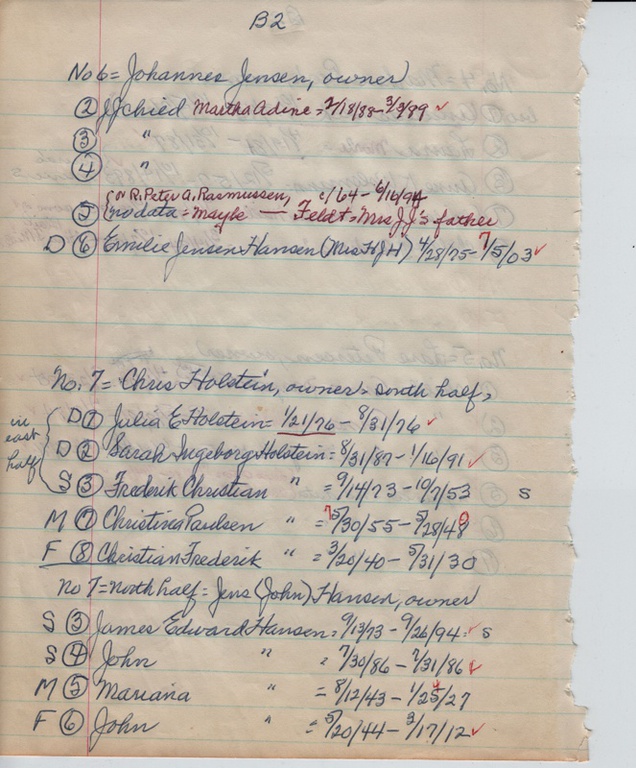 B2
No 6 = Johannes Jensen, owner
② JJ chied Martha Adine = 2/18/88 - 3/3/89 ✓
③ "
④ "
or R. Peter A. Rasmussen, c/64 - 6/16/94
⑤ no data = maybe — Feldt = Mrs JJ's father
D ⑥ Emilie Jensen Hansen (Mrs H J H) 4/28/75 - 7/5/03 ✓
No. 7 = Chris Holstein, owner = south half,
in east half
D ① Julia E Holstein = 1/21/76 - 8/31/76 ✓
D ② Sarah Ingeborg Holstein = 8/31/87 - 1/16/91 ✓
S ③ Frederik Christian " = 9/14/73 - 10/7/53 S
M ⑦ Christina Paulsen " = 5/30/55 - 5/28/48
F ⑧ Christian Frederik " = 3/20/40 - 5/31/30
No 7 = North half = Jens (John) Hansen, owner
S ③ James Edward Hansen = 9/13/73 - 9/26/94 ✓ S
S ④ John " = 7/30/86 - 7/31/86 ✓
M ⑤ Mariana " = 8/12/43 - 1/25/27
F ⑥ John " = 5/20/44 - 3/17/12 ✓